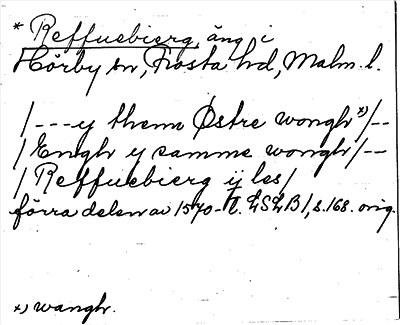 * Reffuebierg, äng i
Hörby sn, Frosta hd, Malm. l.
/---y themn Østre wongh *)/--
/Enngh y samme wongh/--
/Reffuebierg ij les/
förra delen av 1570-t. LSLB 1, s. 168. orig.
*) wangh.